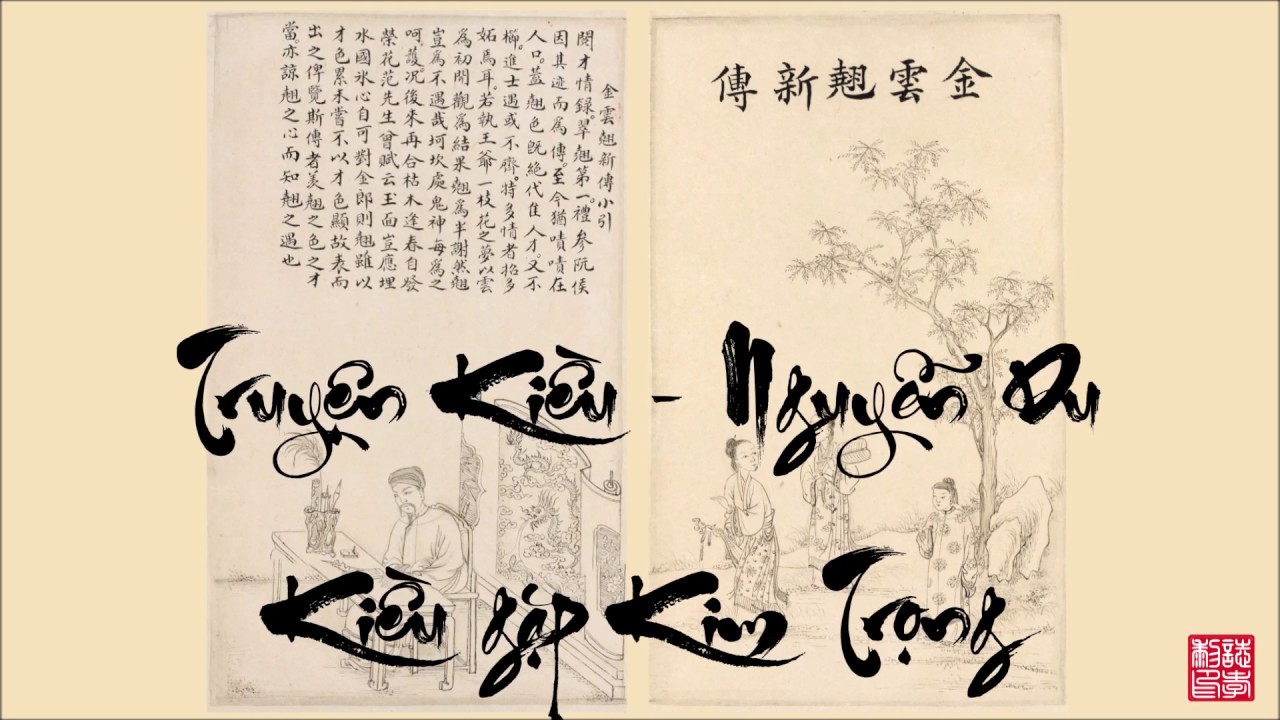 金雲翹新傳
金雲翹新傳小引
閱才情録。翠翹第一。禮參阮侯
因其迹而為傳。至今猶嘖嘖在
人口。蓋翹色既絕代佳人才。又不
櫛。進士遇或不齊。特多情者招多
妬焉耳。若執王爺一枝花之夢以雲
為初開觀為結果翹為半謝然翹
豈為不遇哉坷坎處鬼神每為之
呵護。况後來再合枯木逢春自發
榮花范先生曾賦云玉面豈應埋
水國氷心自可對金郎則翹雖以
才色累未嘗不以才色顯故表而
出之俾覽斯傳者羙翹之色之才
當。亦諒翹之心而知翹之遇也
Truyện Kiều - Nguyễn Du
Kiều gặp Kim Trọng